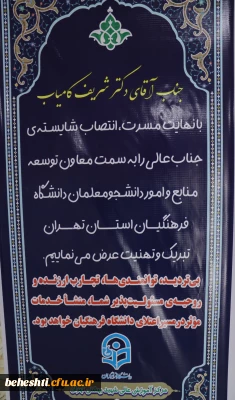 جناب آقای دکتر شریف کامیاب
با نهایت مسرت، انتصاب شایسته‌ی
جناب عالی را به سمت معاون توسعه
منابع و امور دانشجو معلمان دانشگاه
فرهنگیان استان تهران
تبریک و تهنیت عرض می نمایم.
بی‌تردید، توانمندی‌ها، تجارب ارزنده و
روحیه‌ی مسئولیت‌پذیر شما، منشأ خدمات
مؤثر در مسیر اعتلای دانشگاه فرهنگیان خواهد بود.
beheshti.cfu.ac.ir